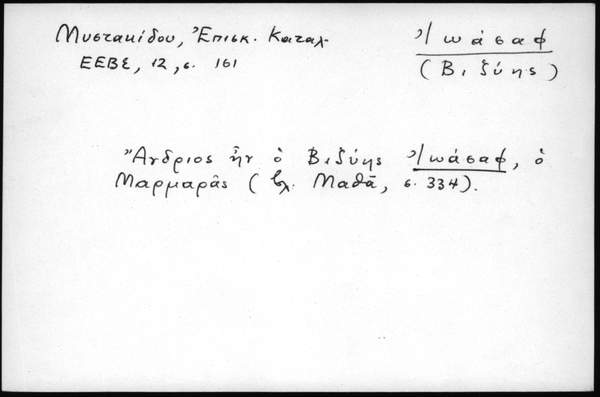 Μυστακίδου, Ἐπισκ. Καταλ.
ΕΕΒΣ, 12, σ. 161
Ἰωάσαφ
(Βιζύης)
Ἄνδριος ἦν ὁ Βιζύης Ἰωάσαφ, ὁ
Μαρμαρᾶς (βλ. Μαθᾶ, σ. 334).